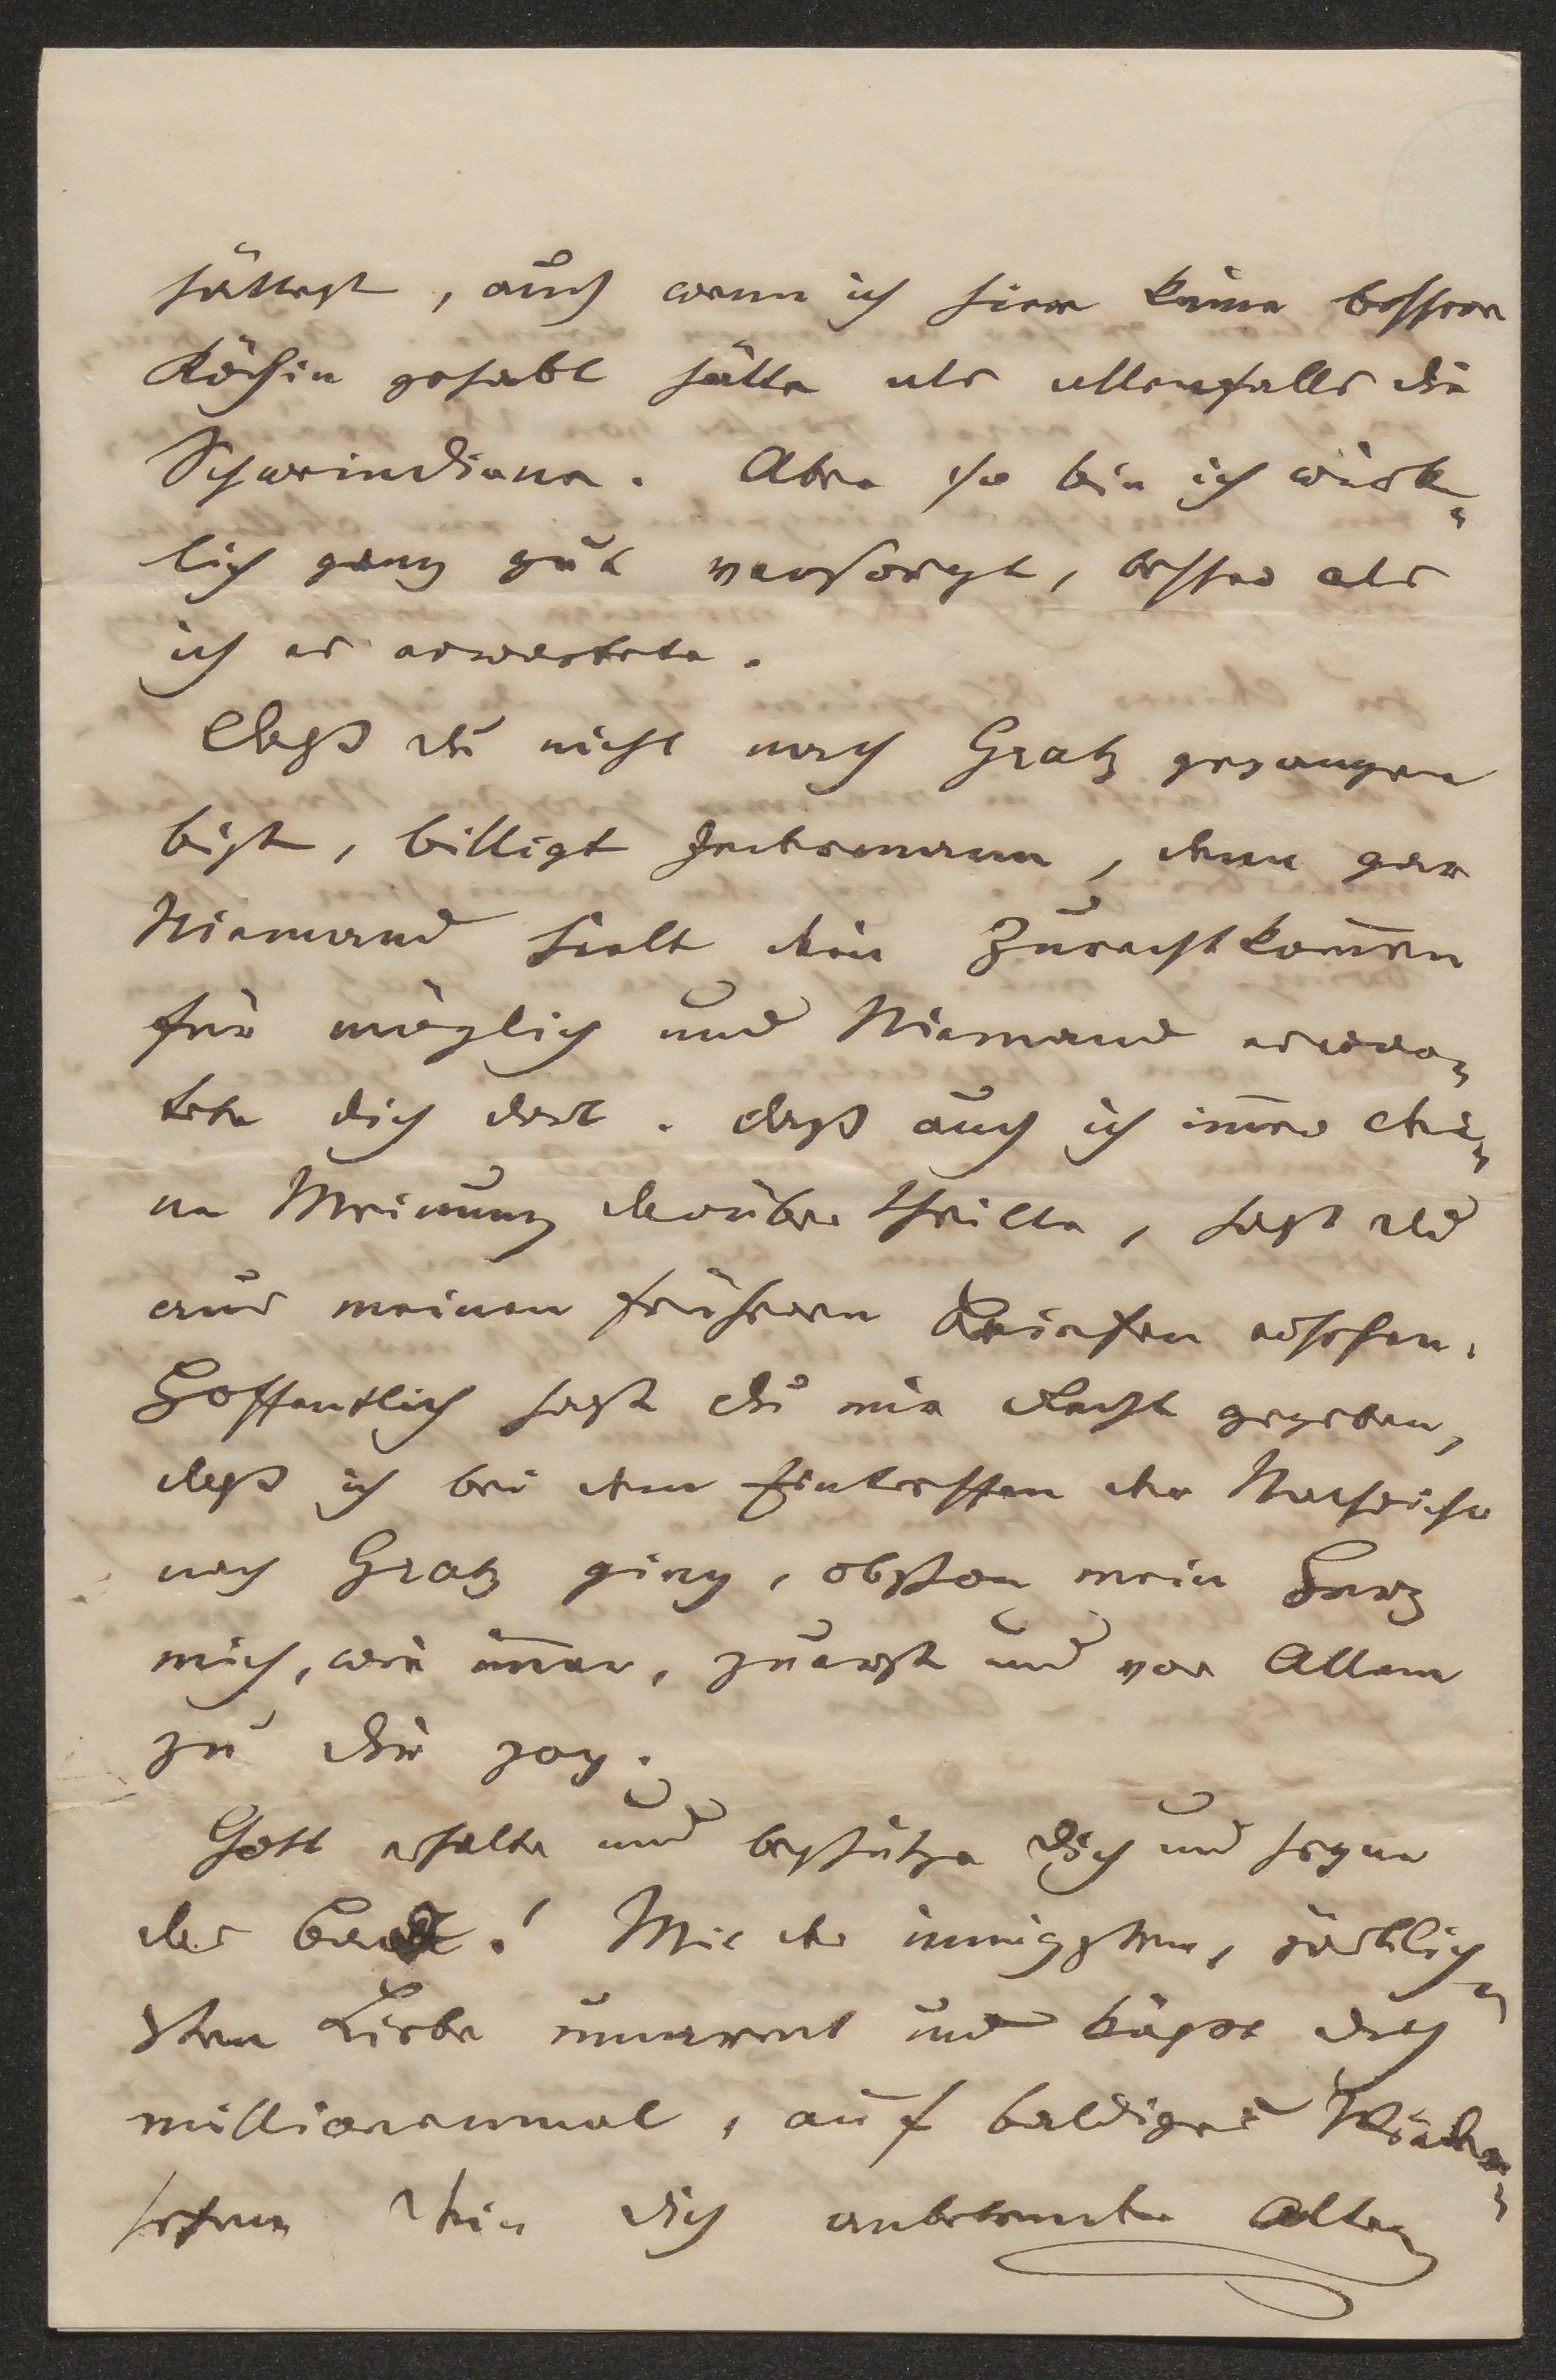 hättest, auch wenn ich hier keine bessere
Köchin gehabt hätte als allenfalls die
Schwindiana. Aber so bin ich wirk-
lich ganz gut versorgt, besser als
ich es erwartete.
Daß du nicht nach Gratz gegangen
bist, billigt Jedermann, denn gar
Niemand hielt dein Zurechtkom̄en
für möglich und Niemand erwar-
tete dich dort. Daß auch ich im̄er dei-
ne Meinung darüber theilte, hast du
aus meinen früheren Briefen ersehen.
Hoffentlich hast du mir Recht gegeben,
daß ich bei dem Eintreffen der Nachricht
nach Gratz ging, obschon mein Herz
mich, wie im̄er, zuerst und vor Allem
zu dir zog.
Gott erhalte und beschütze dich und segne
das Bad! Mit der innigsten, zärtlich-
sten Liebe umarmt und küßt dich
millionenmal, auf baldiges Wieder-
sehen dein dich anbetender Alter